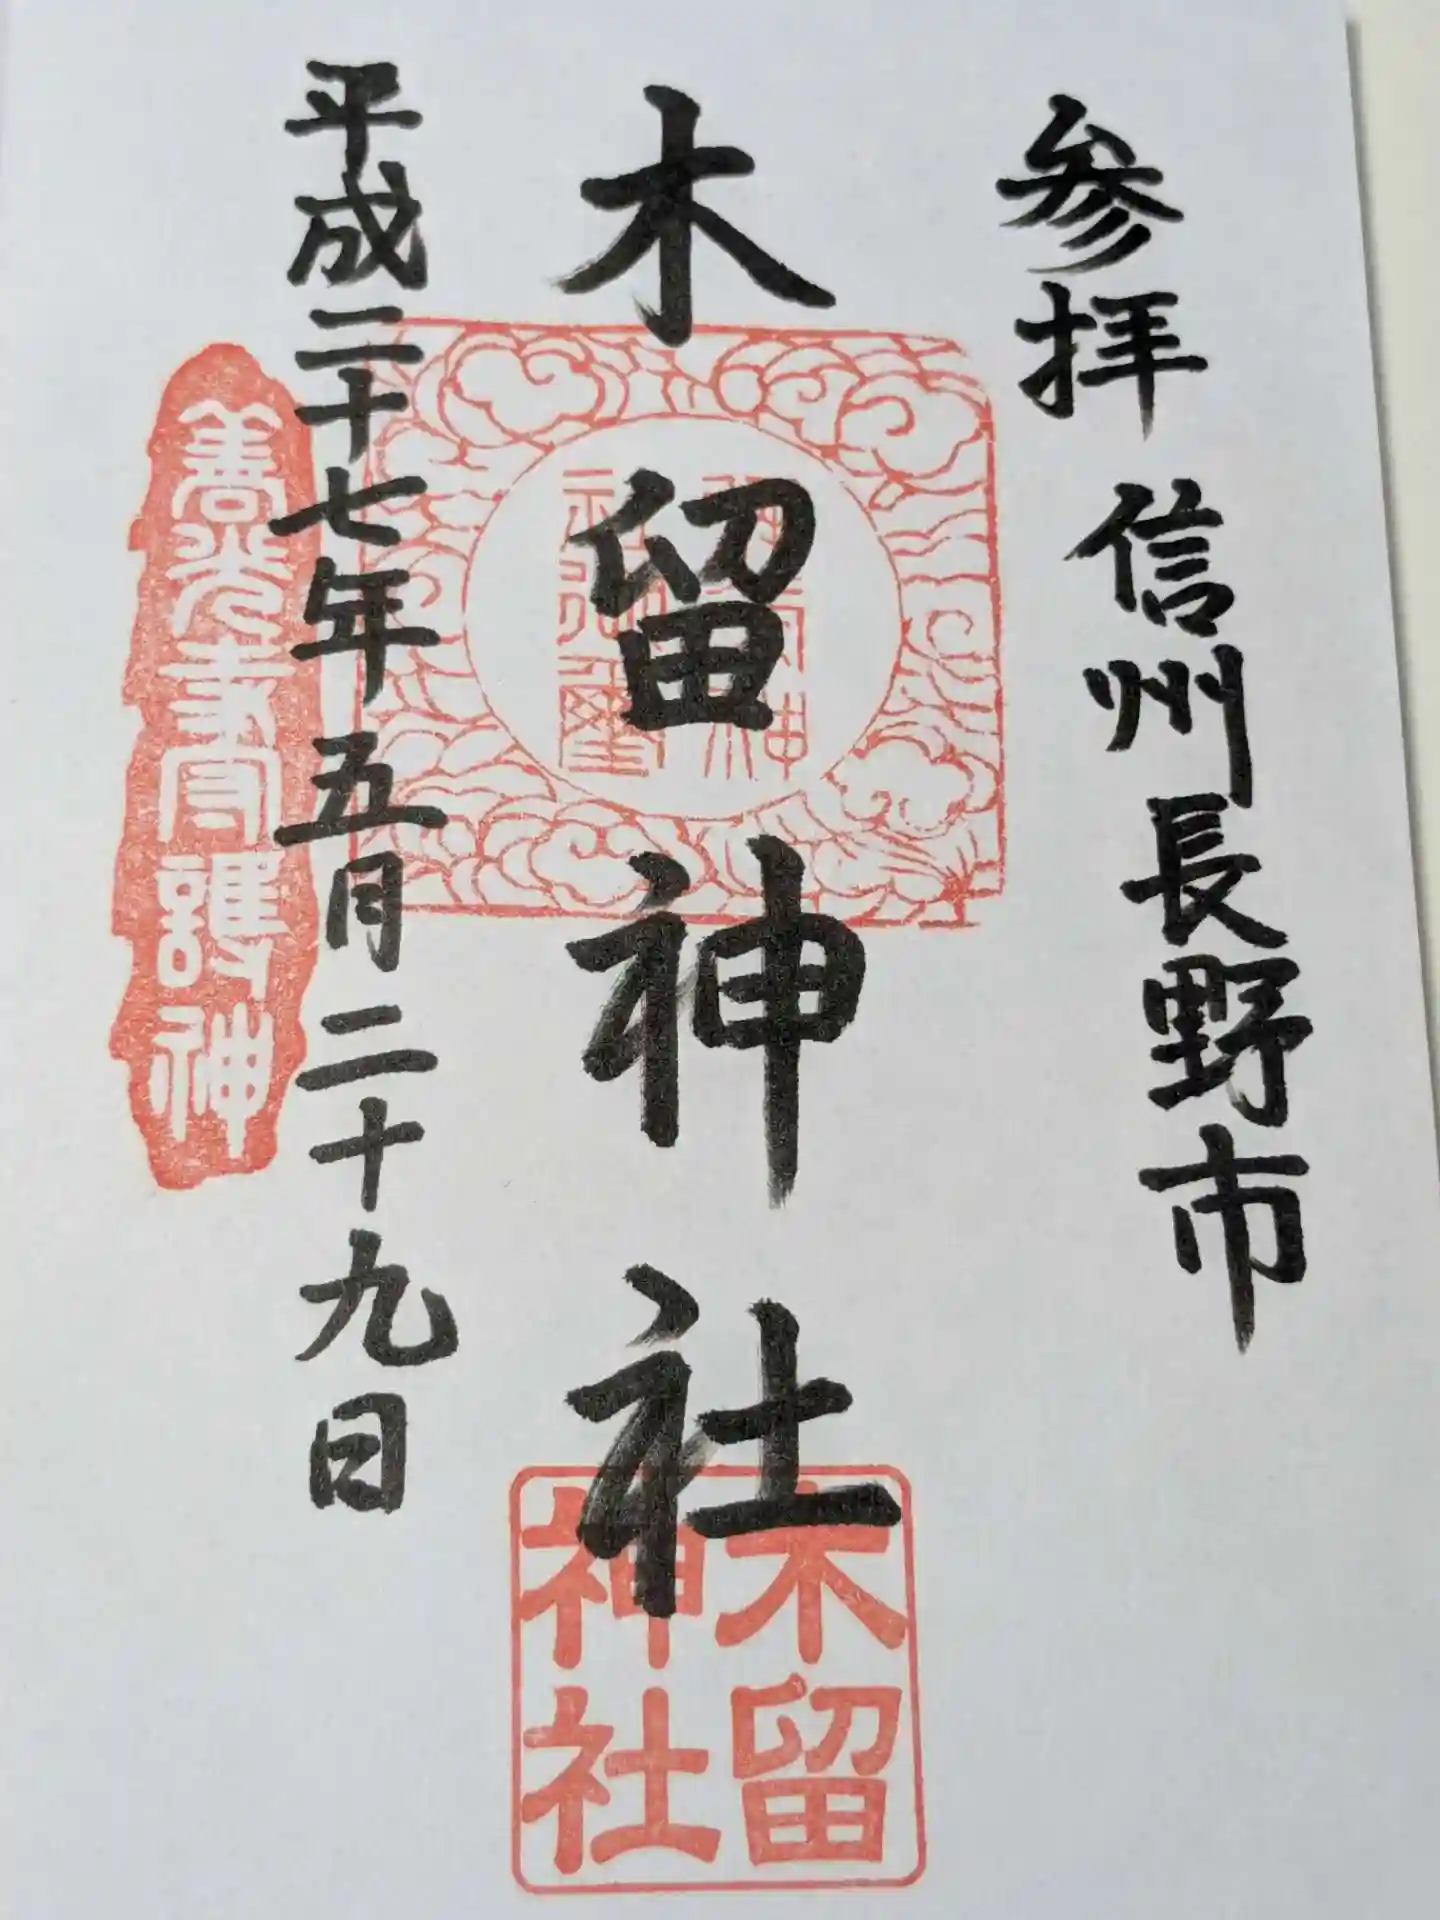 参拝 信州長野市
木留神社
平成二十七年五月二十九日
善光寺守護神
木留
神社